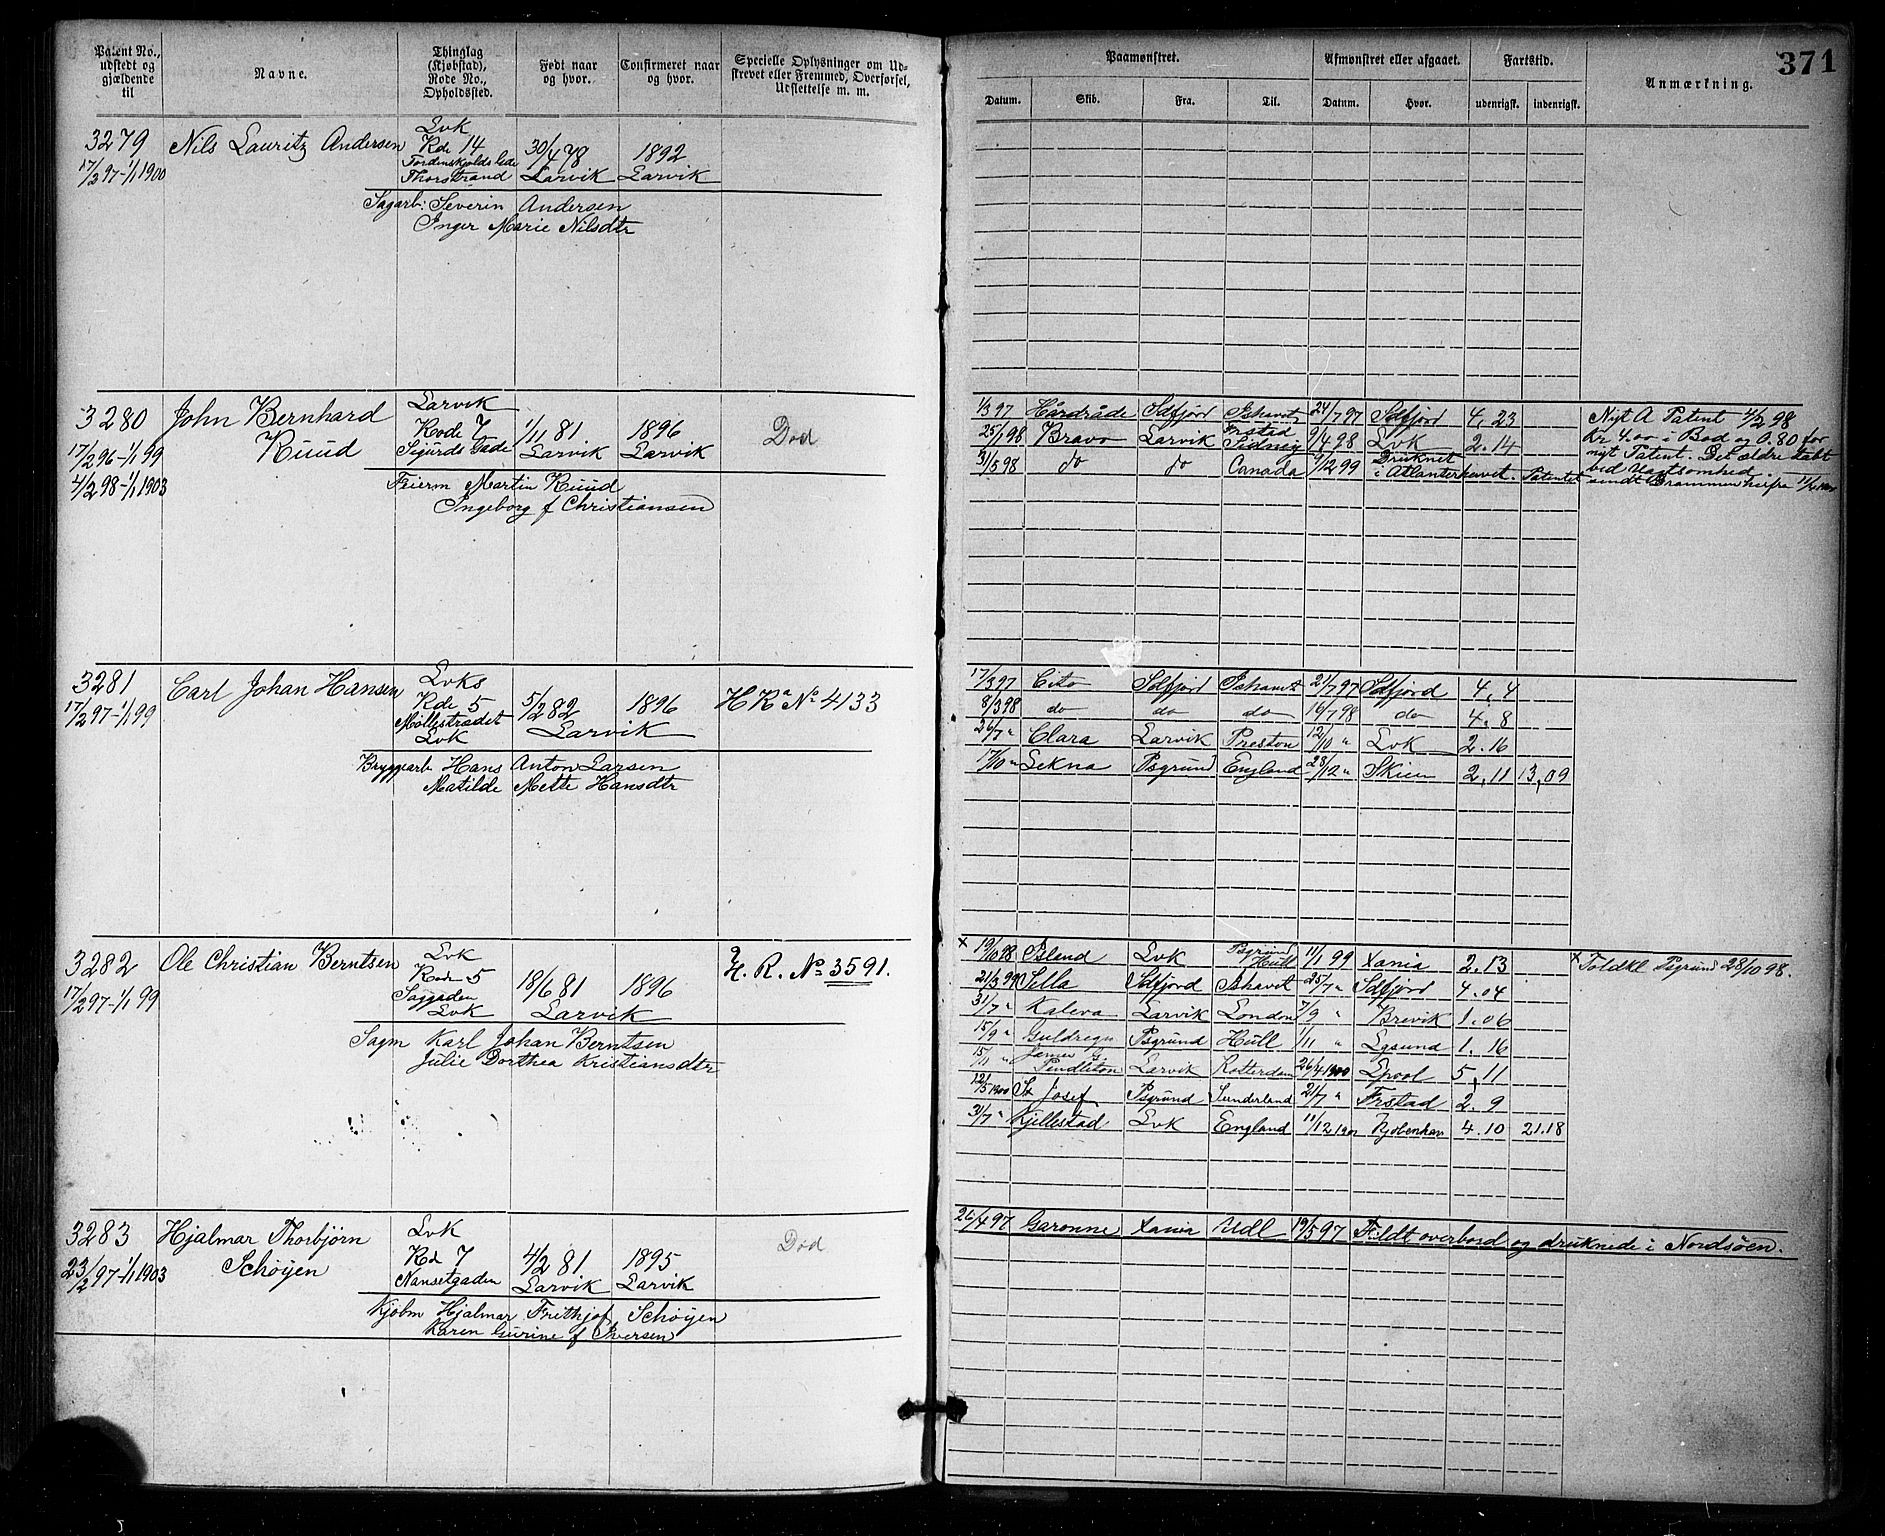 Patent No., udstedt og gjældende til
Navne.
Thinglag (Kjøbstad), Rode No., Opholdssted.
Født naar og hvor.
Confirmeret naar og hvor.
Specielle Oplysninger om Udskrevet eller Fremmed, Overførsel, Udslettelse m. m.
Paamønstret.
Afmønstret eller afgaaet.
Fartstid.
Anmærkning.
371
Datum.
Skib.
Fra.
Til.
Datum.
Hvor.
udenrigsk.
indenrigsk.
3279 Nils Lauritz Andersen
17/2 97-1/1 1900
Lvk
Rde 14
Tordenskjolds Gde
Thorstrand
30/4 78 Larvik
1892 Larvik
Sagarb: Severin Andersen
Inger Marie Nilsdtr
3280 John Bernhard
Ruud
17/2 96-1/1 99
4/2 98-1/1 1903
Larvik
Rode 7
Sigurds Gade
1/11 81 Larvik
1896 Larvik
Død
Feierm Martin Ruud
Ingeborg f Christiansen
1/3 97 Hårdråde Sdfjord Ishavet 24/7 97 Sdfjord 4.23
25/1 98 Bravo Larvik Frstad Sidney 9/4 98 Lvk 2.14
31/5 98 do do Canada 9/12 99 Druknet i Atlanterhavet. Patentet
Nyt A Patent 4/2 98
Kr 4.00 i Bod og 0.80 for
nyt Patent. Det ældre tabt
ved Uagtsomhed.
sendt Brammen herfra
3281 Carl Johan Hansen
17/2 97-1/1 99
Lvks
Rde 5
Møllestrædet
Lvk
5/2 82
1896
Larvik
H Ra No 4133
Bryggearb Hans Anton Larsen
Matilde Mette Hansdtr
17/3 97 Cito Sdfjord Ishavet 21/7 97 Sdfjord 4.4
8/3 98 do do do 16/7 98 do 4.8
26/7 " Clara Larvik Preston 12/10 " Lvk 2.16
17/10 " Lekna Psgrund England 28/12 " Skien 2.11 13,09
3282 Ole Christian Berntsen
17/2 97-1/1 99
Lvk
Rode 5
Saggaden
Lvk
18/6 81
1896
Larvik
H. R. No 3591.
Sagm Karl Johan Berntsen
Julie Dorthea Kristiansdtr
x 19/10 98 Island Lvk Psgrund Hull 11/1 99 Xania 2.13
x Toldkl Psgrund 28/10 98.
21/3 99 Sella Sdfjord Ishavet 25/7 " Sdfjord 4.04
31/7 " Kaleva Larvik London 7/9 " Brevik 1.06
15/9 " Guldregn Psgrund Hull 1/11 " Egsund 1.16
15/11 " James G. Pendleton Larvik Rotterdam 26/4 1900 Lpool 5.11
12/5 1900 St Josef Psgrund Sunderland 21/7 " Frstad 2.9
31/7 " Kjillestad Lvk England 11/12 1900 Kjøbenhavn 4.10 21.18
3283 Hjalmar Thorbjørn
Schøyen
23/2 97-1/1 1903
Lvk
Rd 7
Nansetgaden
4/2 81 Larvik
1895 Larvik
Død
Kjøbm Hjalmar Frithjof Schøyen
Karen Gurine f Iversen
26/4 97 Garonne Xania Udl 19/5 97 Faldt overbord og druknede i Nordsøen.